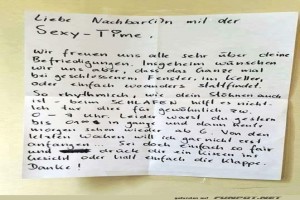 Liebe Nachbar(i)n mit der
Sexy-Time.
Wir freuen uns alle sehr über deine
Befriedigungen. Insgeheim wünschen
wir uns aber, dass das Ganze mal
bei geschlossenem Fenster, im Keller,
oder einfach woanders stattfindet.
So rhythmisch wie dein Stöhnen auch
ist - beim SCHLAFEN hilft es nicht.
Ich tue dies für gewöhnlich zw.
0 - 8 Uhr. Leider warst du gestern
bis in gange und dann heute
morgen schon wieder ab 6. Von den
letzten Wochen will ich gar nicht erst
anfangen... Sei doch einfach so fair
und drück dir ein Kissen ins
Gesicht oder halt einfach die Klappe.
Danke!
gefunden auf FUNPOT.NET